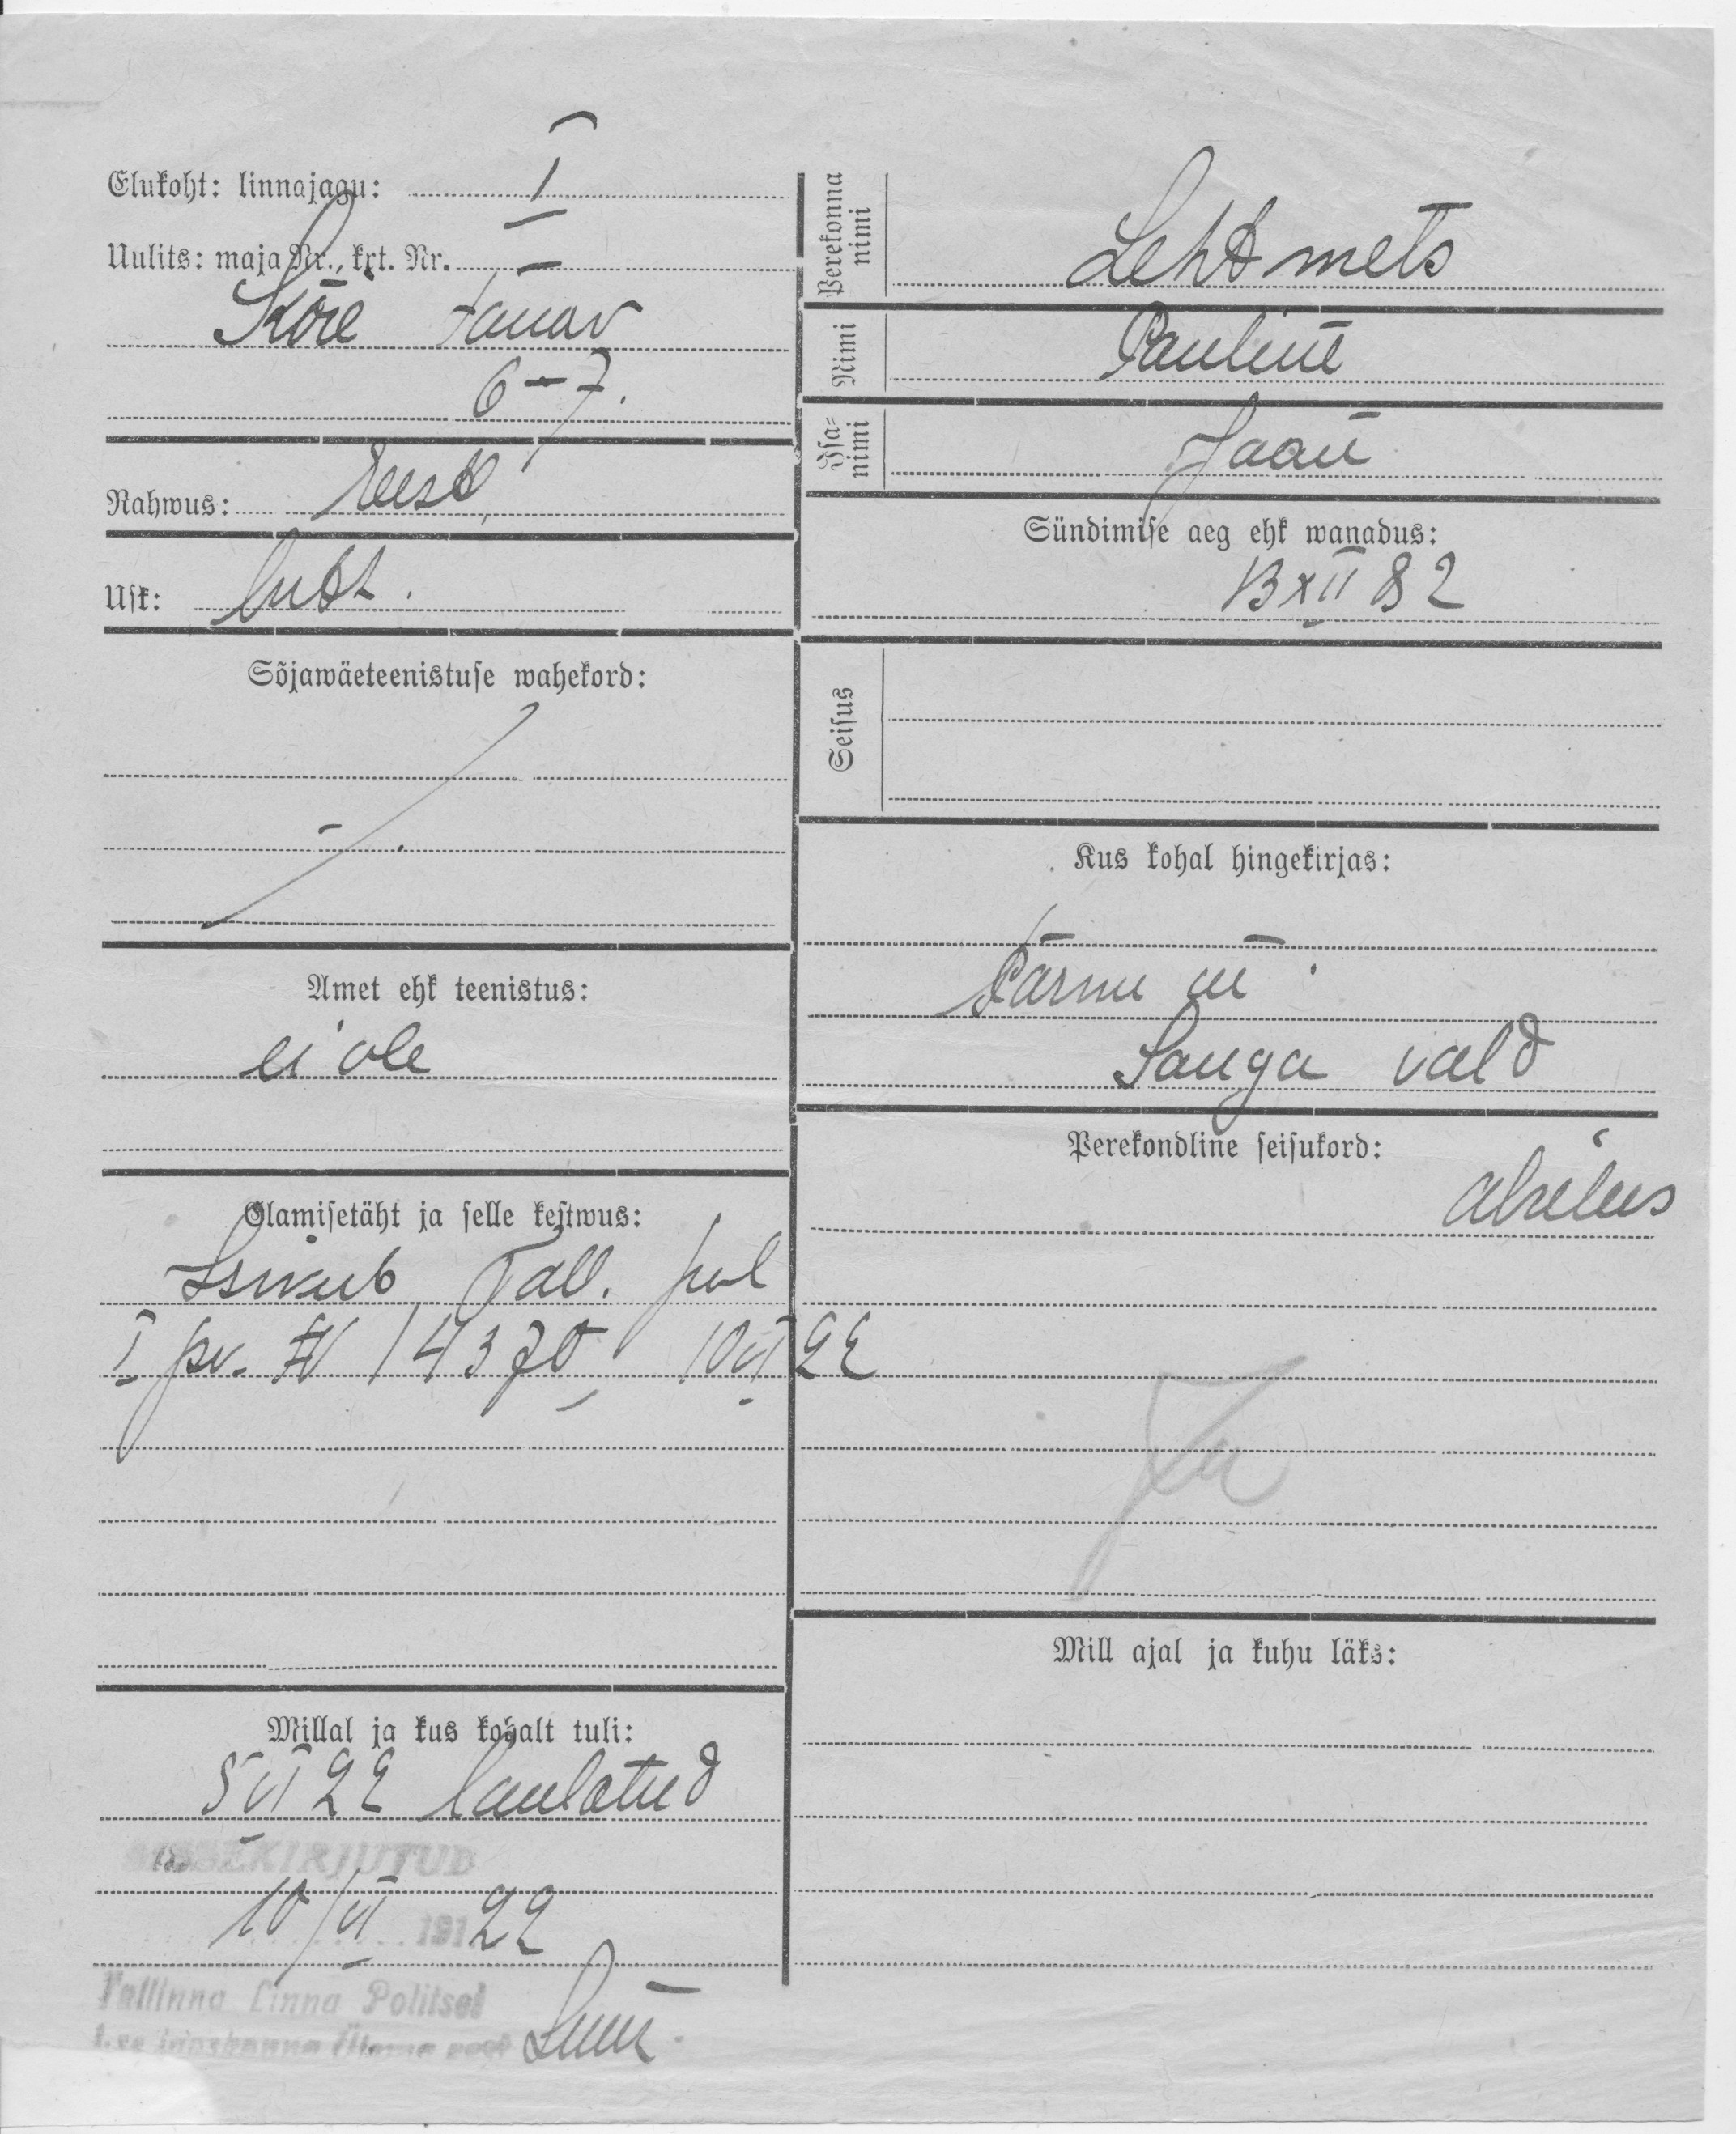 Elukoht: linnajagu: I
Uulits: maja Nr., krt. Nr.
Köie tänav
6–7.
Rahwus: eest,
Usk: luth.
Sõjawäeteenistuse wahekord:
Amet ehk teenistus:
ei ole
Olamisetäht ja selle kestwus:
Isikub Tall. pol
I jsk. № 14370, 10 VI 22
Millal ja kus kohalt tuli:
5 VI 22 laulatud
SISSEKIRJUTUD
10/VI 191 22
Tallinna Linna Politsei
Perekonna nimi
Lehtmets
Nimi
Pauline
Isa-nimi
Jaan
Sündimise aeg ehk wanadus:
13 XII 82
Seisus
Kus kohal hingekirjas:
Pärnu m
Sauga vald
Perekondline seisukord:
abielus
Mill ajal ja kuhu läks: